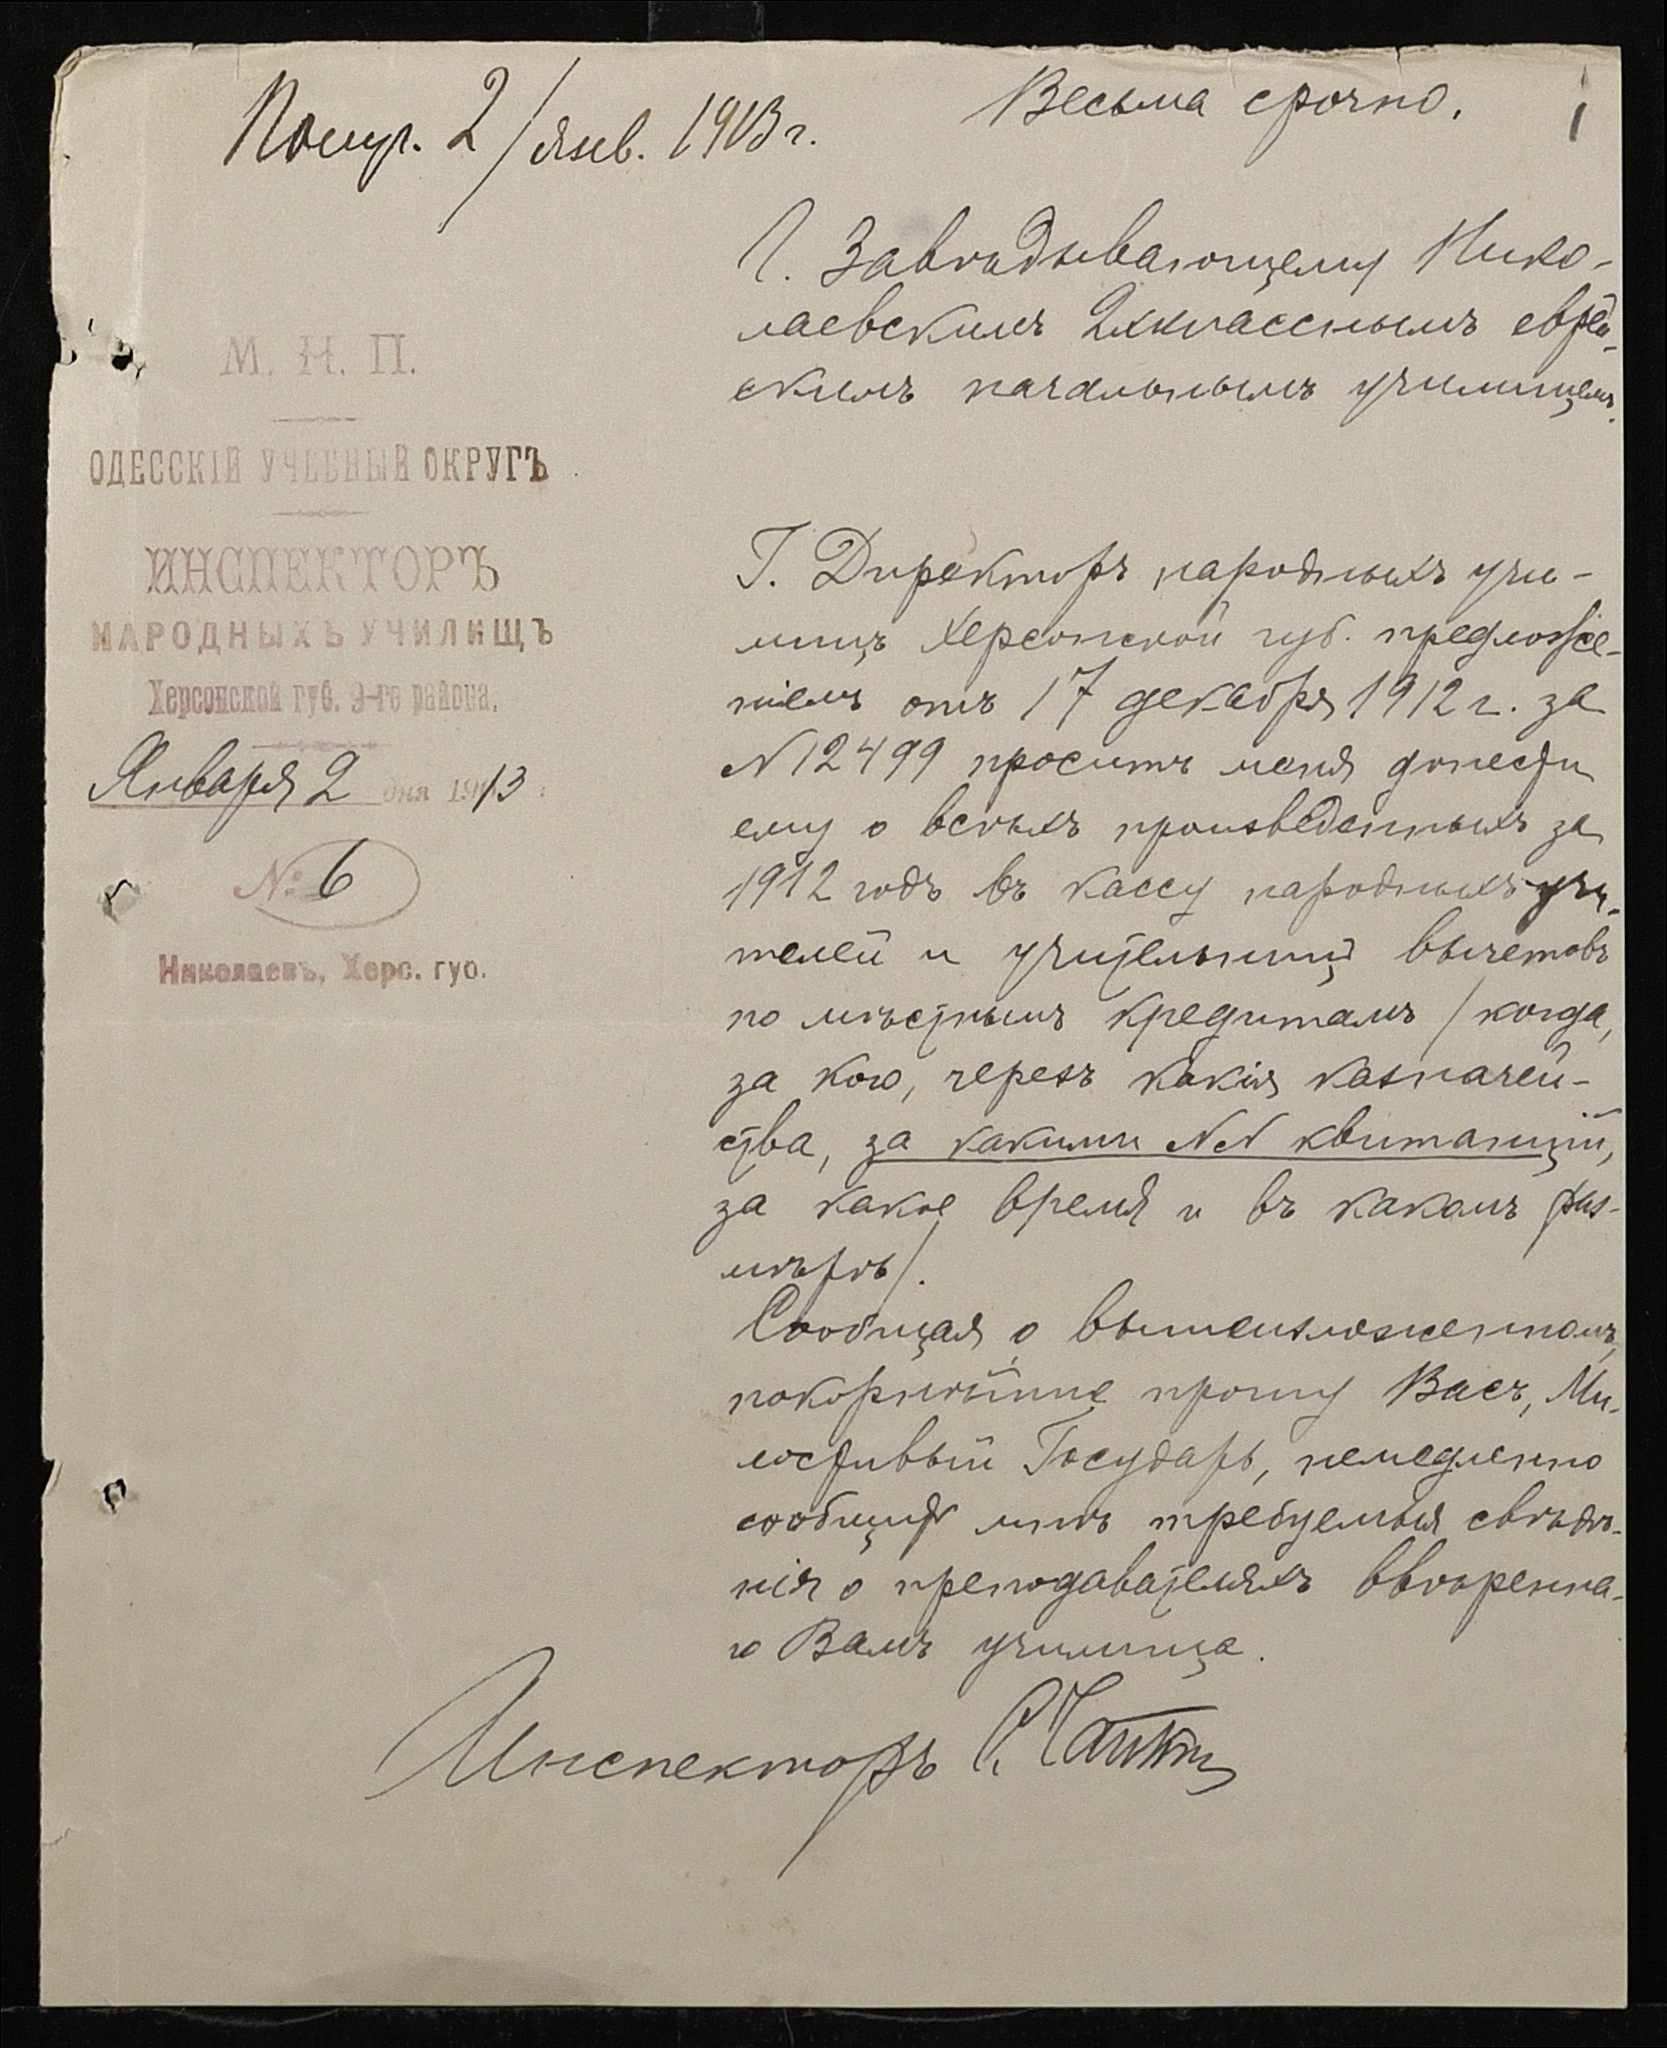 Получ. 2/янв. 1913 г.
Весьма срочно.
1
М. Н. П.
ОДЕССКІЙ УЧЕБНЫЙ ОКРУГЪ
ИНСПЕКТОРЪ
НАРОДНЫХЪ УЧИЛИЩЪ
Херсонской губ. 9-го района.
Января 2 дня 1913 г.
№ 6
Николаевъ, Херс. губ.
Г. Завѣдывающему Нико-
лаевскимъ 2хкласснымъ еврей-
скимъ начальнымъ училищемъ.
Г. Директоръ народныхъ учи-
лищъ Херсонской губ. предложе-
ніемъ отъ 17 декабря 1912 г. за
N 12499 проситъ меня донести
ему о всѣхъ произведенныхъ за
1912 годъ въ кассу народныхъ учи-
телей и учительницъ вычетовъ
по мѣстнымъ кредитамъ /когда,
за кого, черезъ какія казначей-
ства, за какими NN квитанцій,
за какое время и въ какомъ раз-
мѣрѣ/.
Сообщая о вышеизложенномъ,
покорнѣйше прошу Васъ, Ми-
лостивый Государь, немедленно
сообщить мнѣ требуемыя свѣдѣ-
нія о преподавателяхъ ввѣренна-
го Вамъ училища.
Инспекторъ